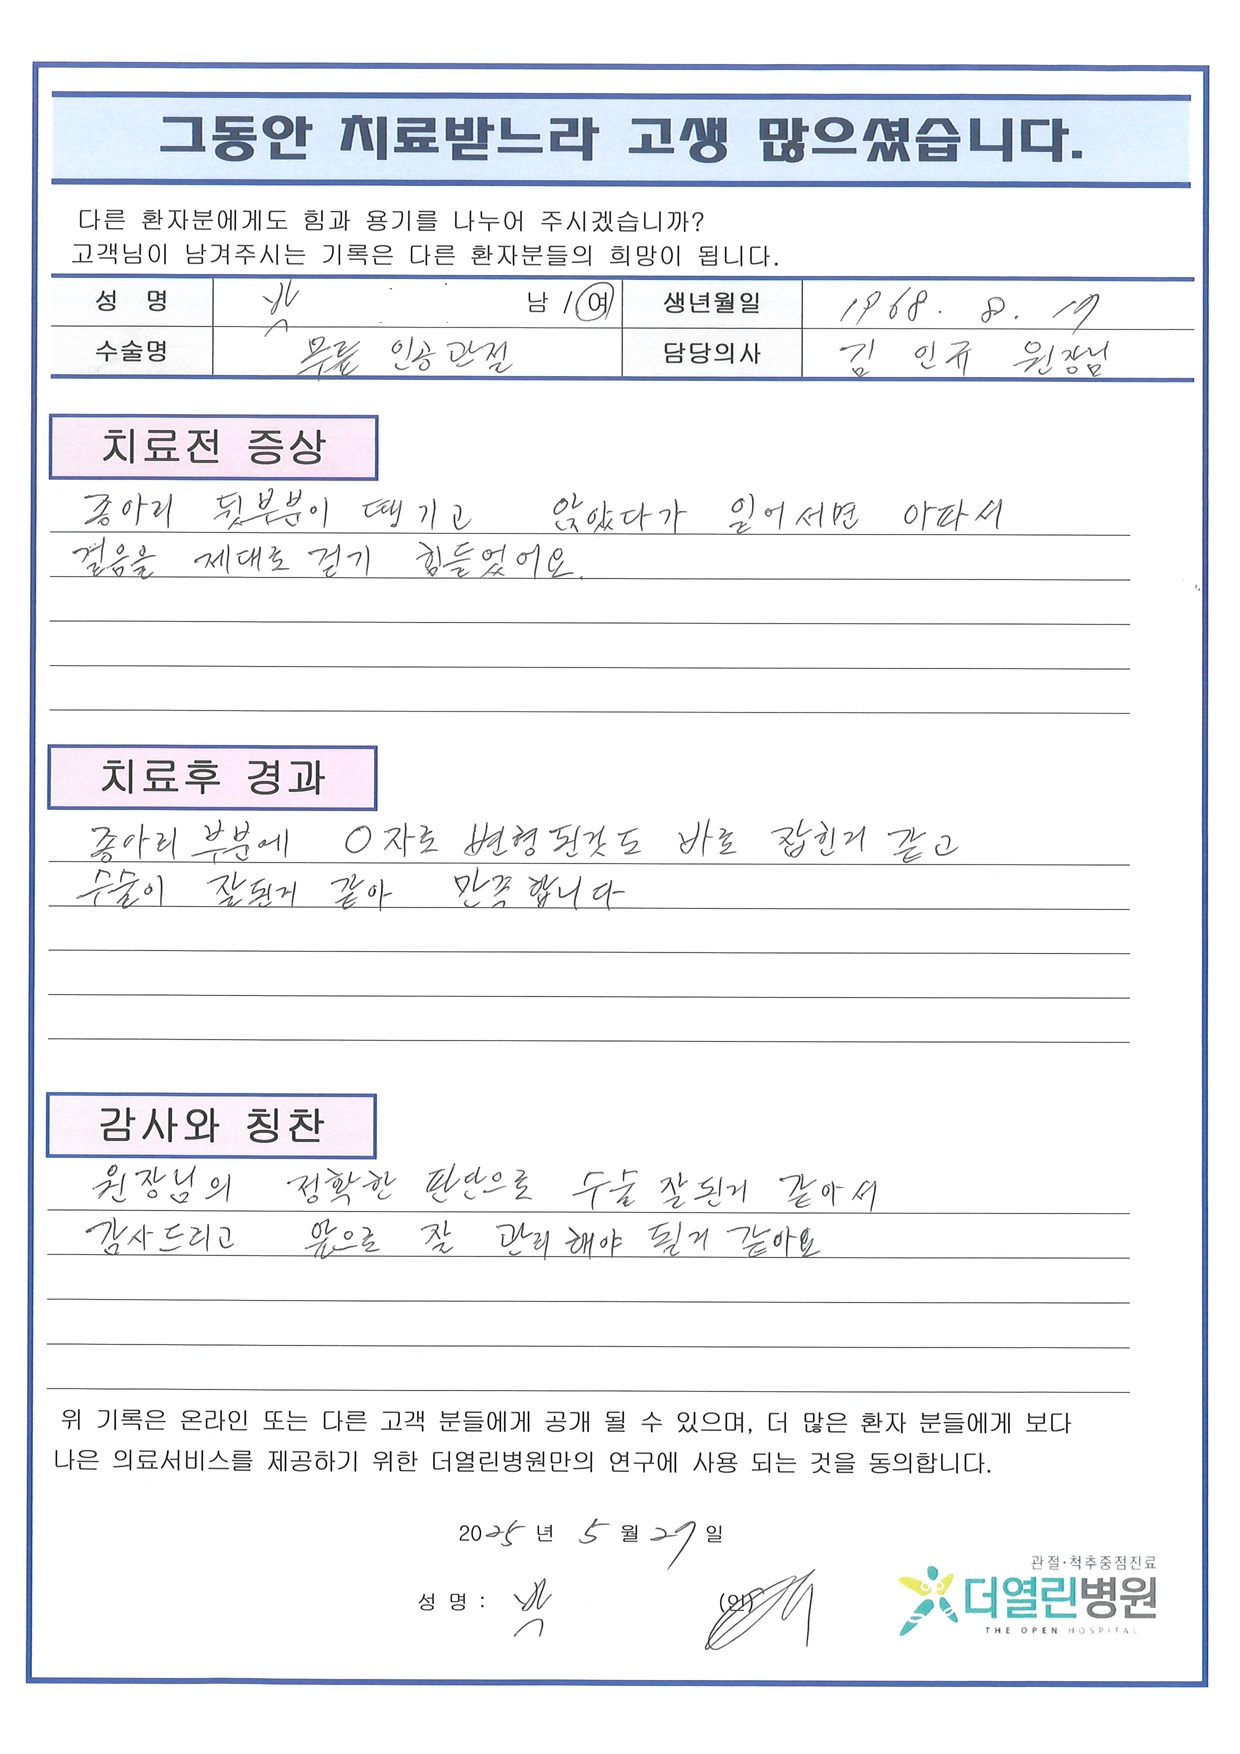 그동안 치료받느라 고생 많으셨습니다.
다른 환자분에게도 힘과 용기를 나누어 주시겠습니까?
고객님이 남겨주시는 기록은 다른 환자분들의 희망이 됩니다.
성 명 박 남 / 여 생년월일 1968. 8. 17
수술명 무릎 인공관절 담당의사 김 인규 원장님
치료전 증상
종아리 뒷부분이 땡기고 앉았다가 일어서면 아파서
걸음을 제대로 걷기 힘들었어요.
치료후 경과
종아리 부분에 O자로 변형된것도 바로 잡힌거 같고
수술이 잘된거 같아 만족합니다
감사와 칭찬
원장님의 정확한 판단으로 수술 잘된거 같아서
감사드리고 앞으로 잘 관리해야 될거 같아요
위 기록은 온라인 또는 다른 고객 분들에게 공개 될 수 있으며, 더 많은 환자 분들에게 보다
나은 의료서비스를 제공하기 위한 더열린병원만의 연구에 사용 되는 것을 동의합니다.
2025 년 5 월 27 일
성 명 : 박 (인)
관절·척추중점진료
더열린병원
THE OPEN HOSPITAL